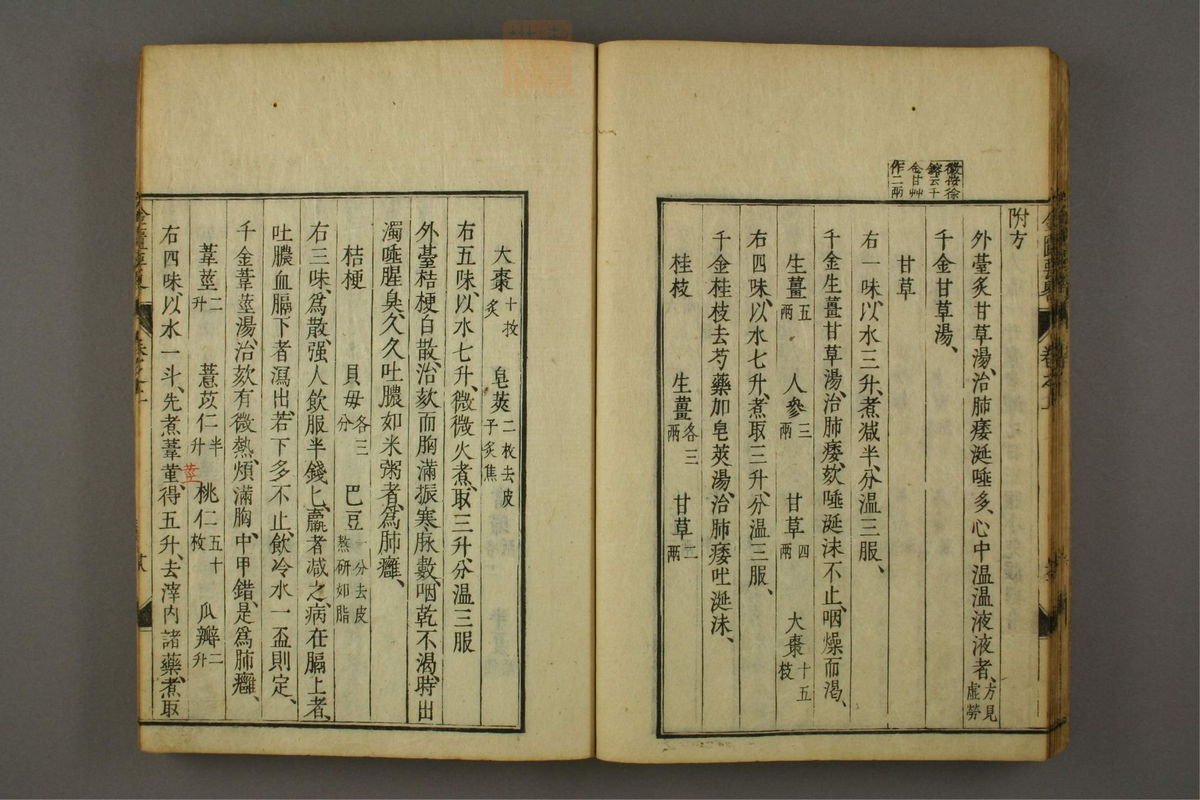 徵按徐
鎔云千
金甘艸
作二兩
附方
外臺炙甘草湯、治肺痿涎唾多、心中温温液液者、方見虛勞
千金甘草湯、
甘草
右一味、以水三升、煮减半、分温三服、
千金生薑甘草湯、治肺痿、欬唾涎沫不止、咽燥而渴、
生薑五兩 人參三兩 甘草四兩 大棗十五枚
右四味、以水七升、煮取三升、分温三服、
千金桂枝去芍藥加皂莢湯、治肺痿吐涎沫、
桂枝 生薑各三兩 甘草二兩
大棗十枚炙 皂莢二枚去皮子炙焦
右五味、以水七升、微微火煮、取三升、分温三服
外臺桔梗白散、治欬而胸滿振寒、脉數、咽乾不渴、時出
濁唾腥臭、久久吐膿如米粥者、爲肺癰、
桔梗 貝母各三分 巴豆一分去皮熬研如脂
右三味、爲散、强人飲服半錢匕、羸者减之、病在膈上者、
吐膿血、膈下者瀉出、若下多不止、飲冷水一盃則定、
千金葦莖湯、治欬有微熱、煩滿、胸中甲錯、是爲肺癰、
葦莖二升 薏苡仁半升 桃仁五十枚 瓜瓣二升
右四味、以水一斗、先煮葦菫、得五升、去滓、内諸藥、煮取
莖